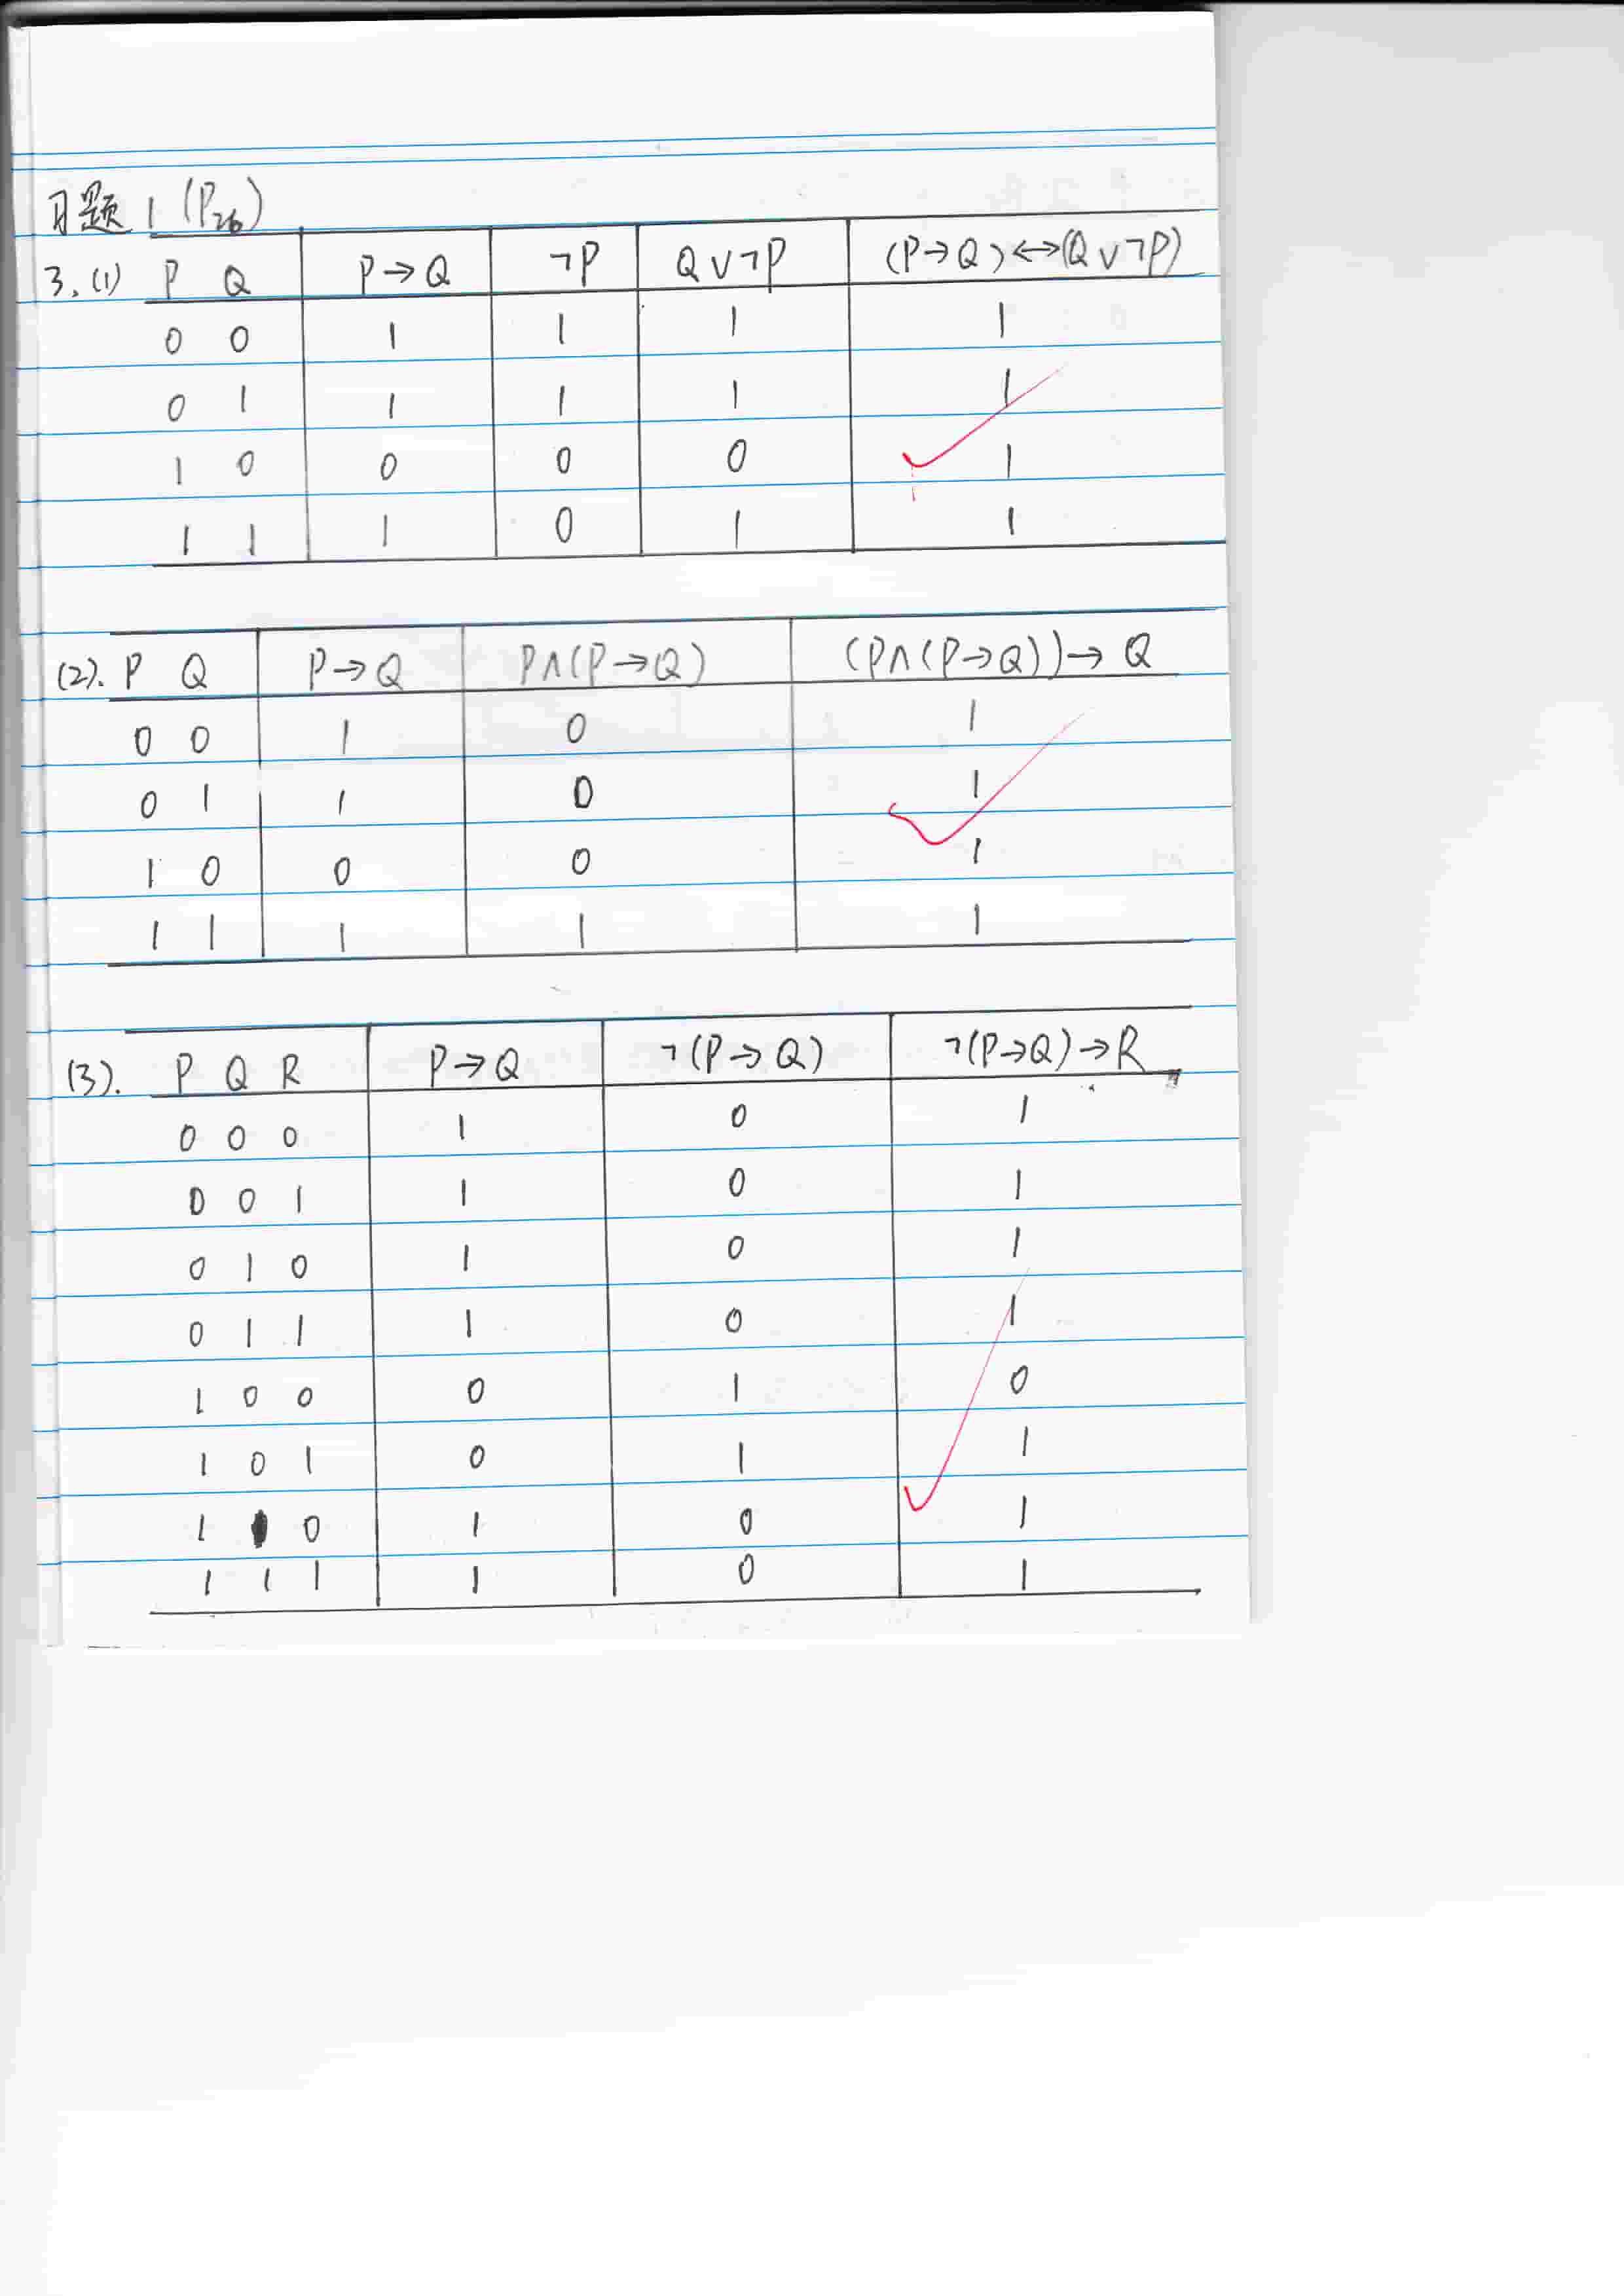 习题 1 (P26)
3. (1) P Q P→Q ¬P Q∨¬P (P→Q)↔(Q∨¬P)
0 0 1 1 1 1
0 1 1 1 1 1
1 0 0 0 0 1
1 1 1 0 1 1
(2). P Q P→Q P∧(P→Q) (P∧(P→Q))→Q
0 0 1 0 1
0 1 1 0 1
1 0 0 0 1
1 1 1 1 1
(3). P Q R P→Q ¬(P→Q) ¬(P→Q)→R
0 0 0 1 0 1
0 0 1 1 0 1
0 1 0 1 0 1
0 1 1 1 0 1
1 0 0 0 1 0
1 0 1 0 1 1
1 1 0 1 0 1
1 1 1 1 0 1